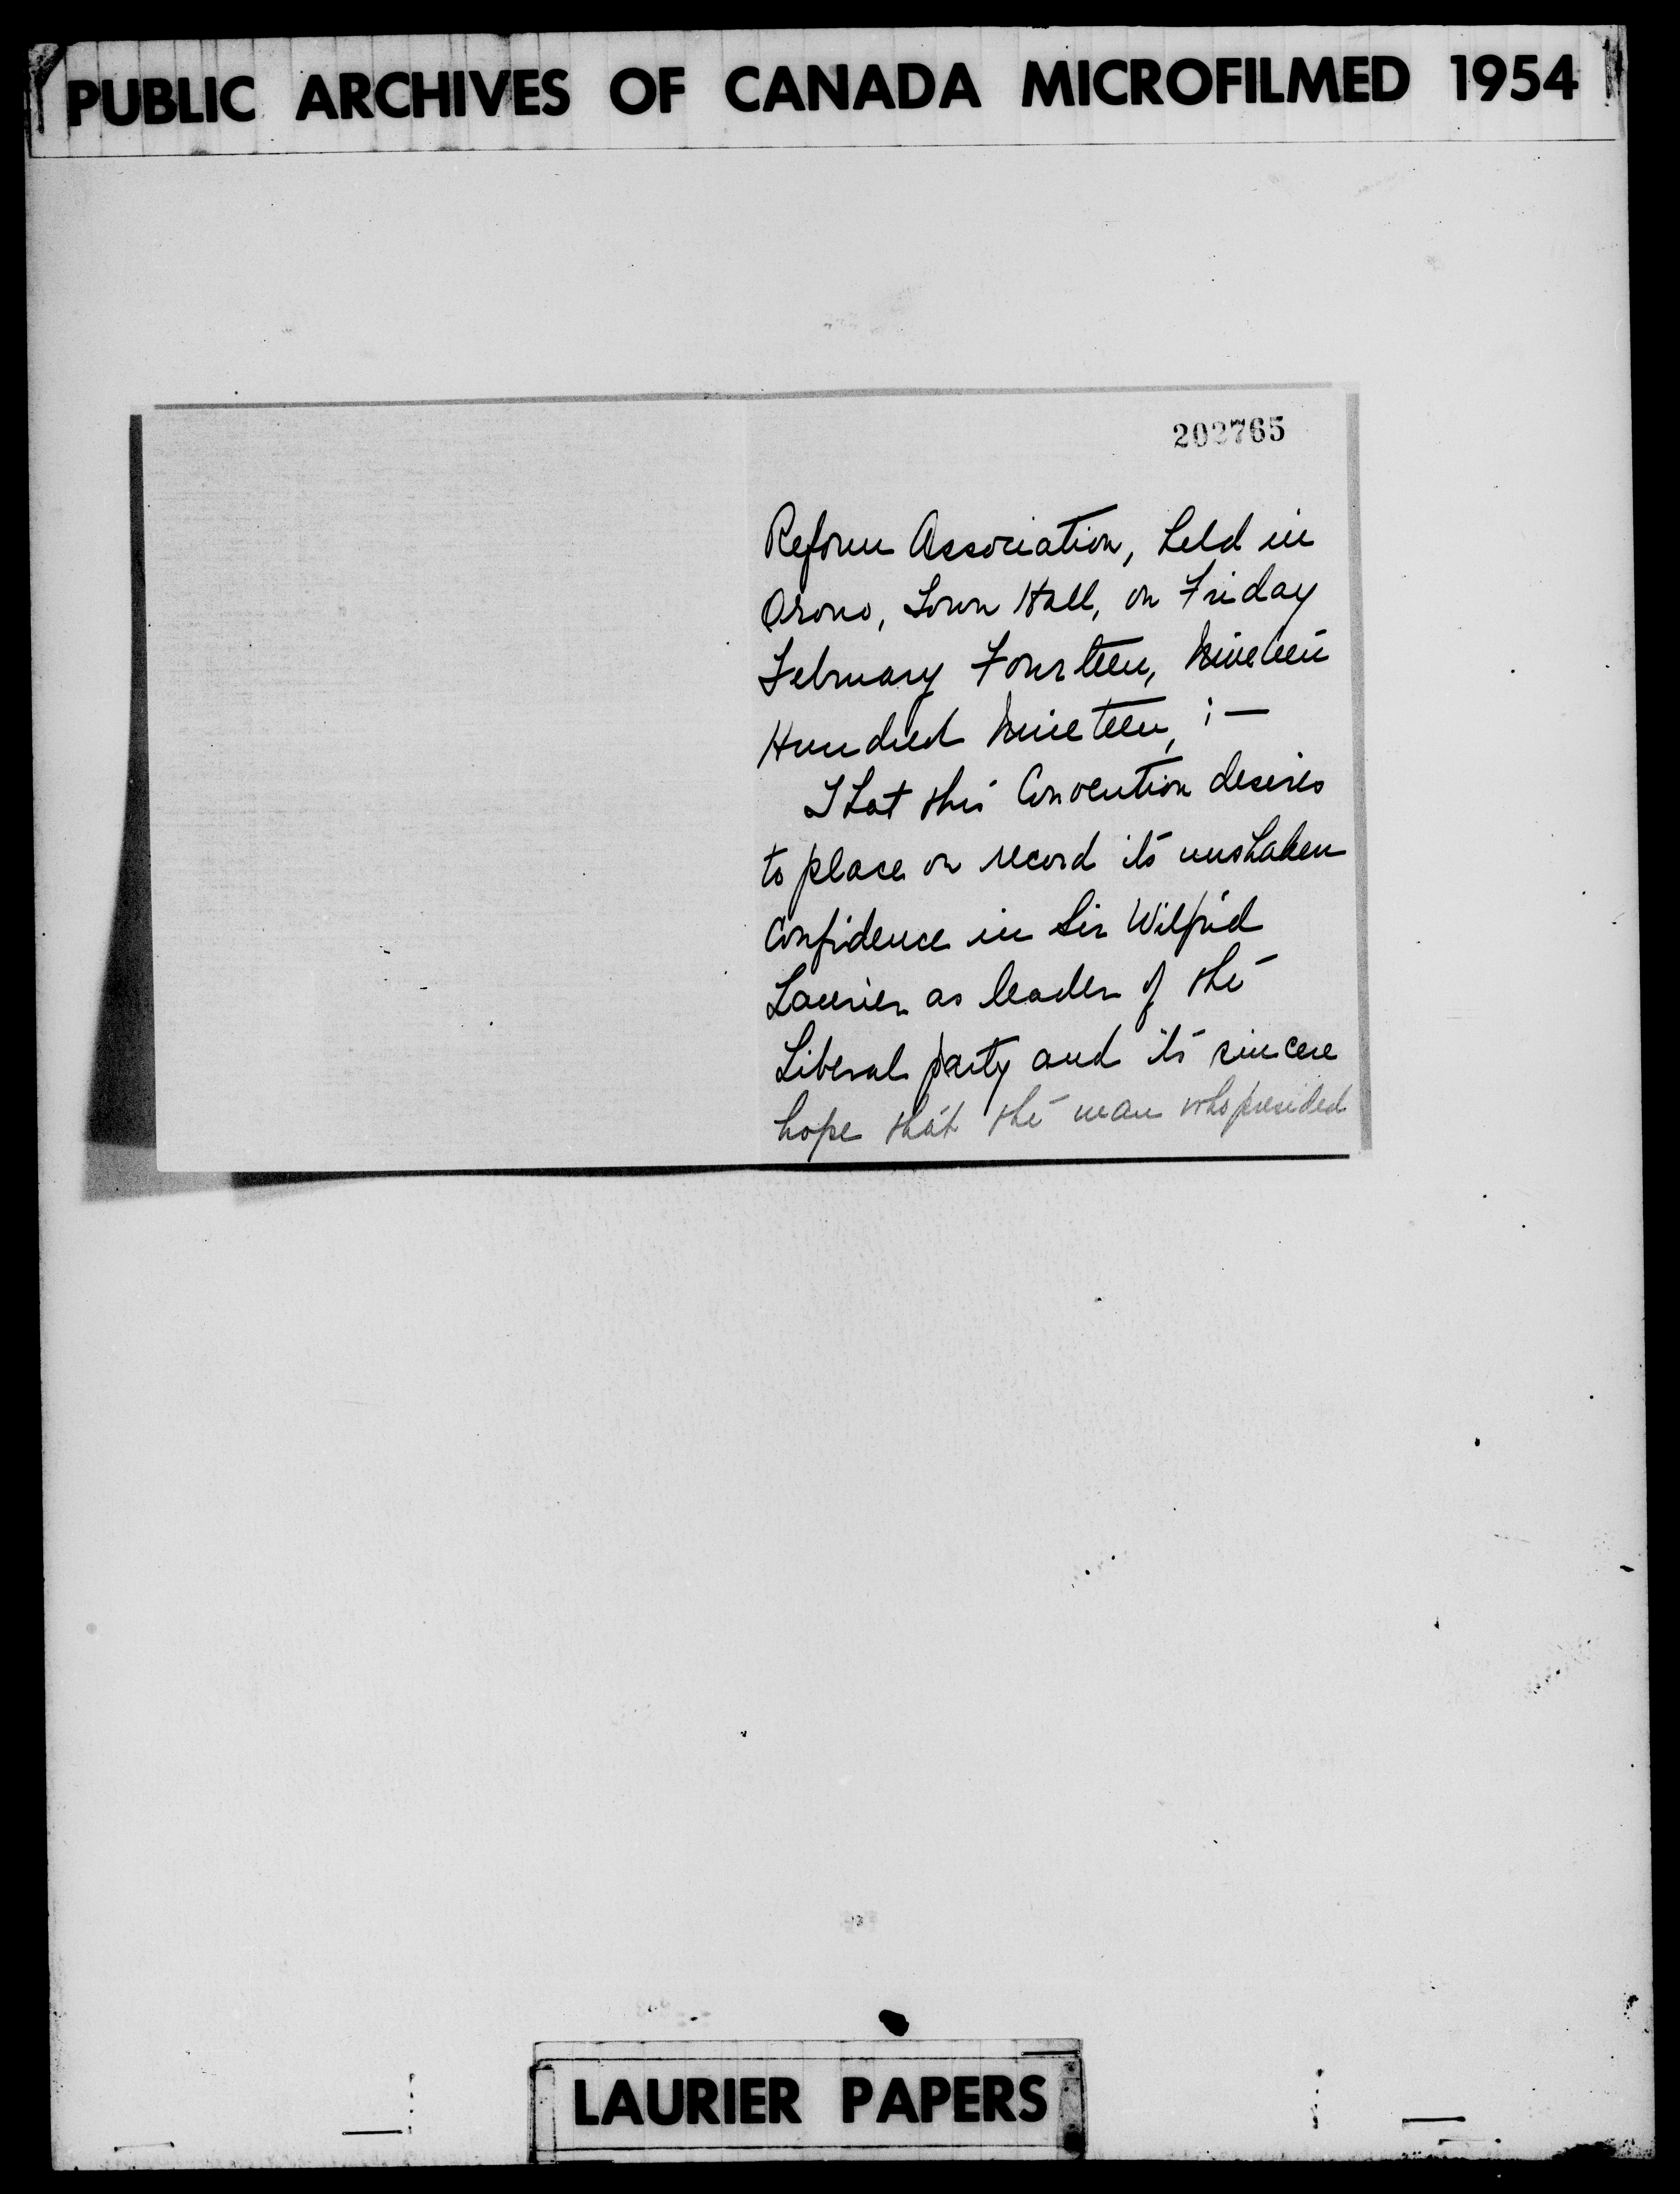 PUBLIC ARCHIVES OF CANADA MICROFILMED 1954
202765
Reform Association, held in
Orono, Town Hall, on Friday
February Fourteen, Nineteen
Hundred Nineteen, :—
That this Convention desires
to place on record its unshaken
confidence in Sir Wilfrid
Laurier as leader of the
Liberal party and its sincere
hope that the man who presided
LAURIER PAPERS